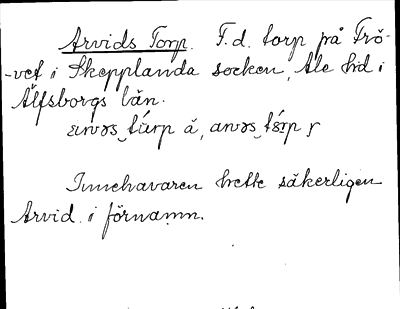 Arvids Torp. F.d. torp på Frö-
-vet i Skepplanda socken, Ale hd i
Älfsborgs län.
Innehavaren hette säkerligen
Arvid i förnamn.